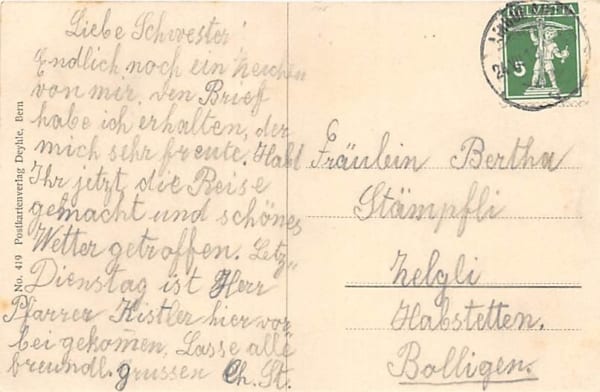 Liebe Schwester!
Endlich noch ein Zeichen
von mir, den Brief
habe ich erhalten, der
mich sehr freute. Habt
Ihr jetzt die Reise
gemacht und schönes
Wetter getroffen. Letz"
Dienstag ist Herr
Pfarrer Kistler hier vor
bei gekom̄en. Lasse alle
freundl. grüssen Ch. St.
Fräulein Bertha
Stämpfli
Zelgli
Habstetten.
Bolligen.
HELVETIA
5
No. 419 Postkartenverlag Deyhle, Bern